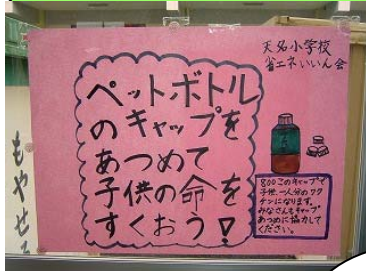 天名小学校
省エネいいん会
ペットボトル
のキャップを
あつめて
子供の命を
すくおう!
800このキャップで
子供一人分のワク
チンになります。
みなさんもキャップ
あつめに協力して
ください。
もやせる